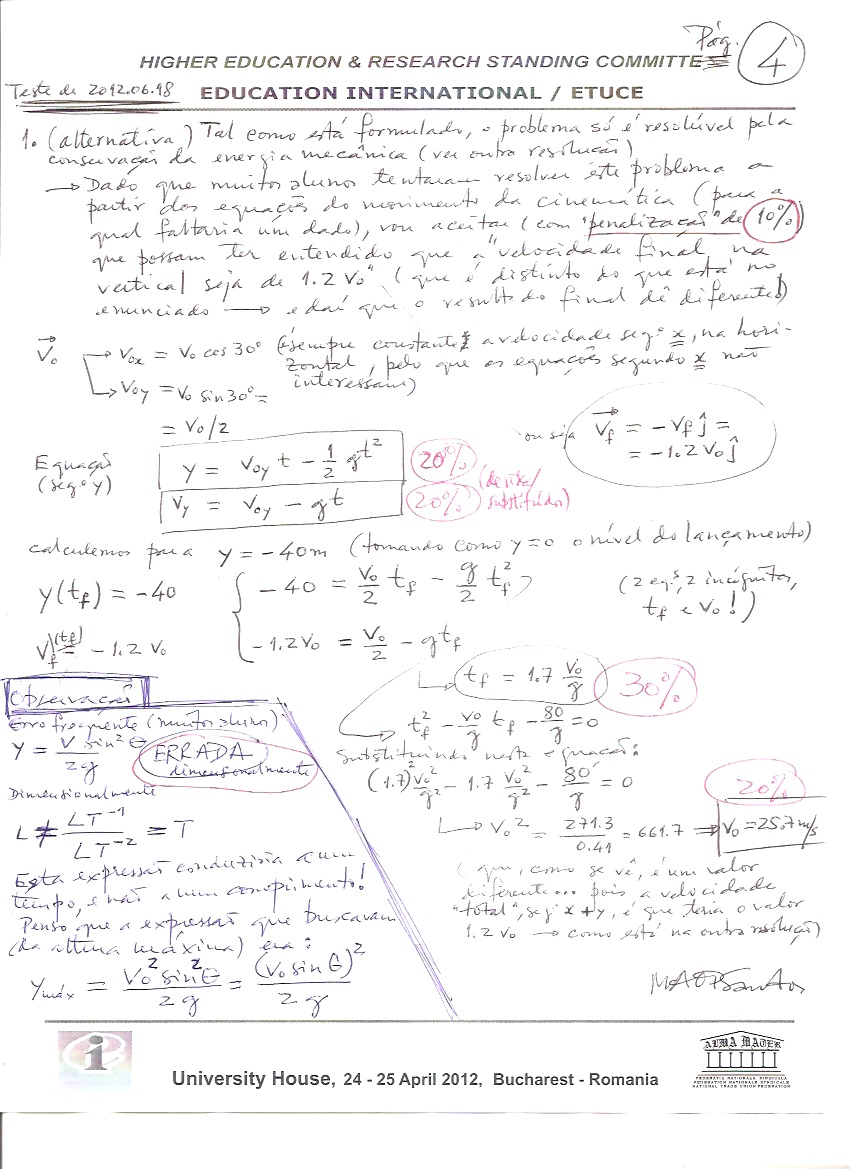 Pág. 4
HIGHER EDUCATION & RESEARCH STANDING COMMITTEE
Teste de 2012.06.18
EDUCATION INTERNATIONAL / ETUCE
1. (alternativa) Tal como está formulado, o problema só é resolúvel pela
conservação da energia mecânica (ver outra resolução)
→ Dado que muitos alunos tentaram resolver este problema a
partir das equações do movimento da cinemática (para a
qual faltaria um dado), vou aceitar (com "penalização" de 10%)
que possam ter entendido que a "velocidade final, na
vertical seja de 1.2 Vo" (que é distinto do que está no
enunciado → e daí que o resultado final dê diferente!)
Vo → Vox = Vo cos 30° (é sempre constante a velocidade segº x, na hori-
zontal, pelo que as equações segundo x não
interessam)
→ Voy = Vo sin 30° =
= Vo/2
ou seja Vf = - Vf ĵ =
= -1.2 Vo ĵ
Equação
(segº y)
y = Voy t - 1/2 gt² 20%
Vy = Voy - gt 20%
(
substituídos)
calculemos para y = -40m (tomando como y=0 o nível do lançamento)
y(tf) = -40 { -40 = Vo/2 tf - g/2 tf²
(2 eqs, 2 incógnitas,
tf e Vo!)
Vf(tf) = -1.2 Vo { -1.2 Vo = Vo/2 - g tf
tf = 1.7 Vo/g 30%
tf² - Vo/g tf - 80/g = 0
Substituindo nesta equação:
(1.7)² Vo²/g² - 1.7 Vo²/g² - 80/g = 0
20%
Vo² = 271.3/0.41 = 661.7 ⇒ Vo = 25.7 m/s
(que, como se vê, é um valor
diferente... pois a velocidade
"total", segº x + y, é que teria o valor
1.2 Vo → como está na outra resolução)
Observação
Erro frequente (muitos alunos):
Y = V sin² θ / 2g
ERRADA
dimensionalmente
Dimensionalmente
L ≠ LT⁻¹ / LT⁻² = T
Esta expressão conduziria a um
tempo, e não a um comprimento!
Penso que a expressão que buscavam
(da altura máxima) era:
Ymáx = Vo² sin² θ / 2g = (Vo sin θ)² / 2g
MAOPSantos
i
University House, 24 - 25 April 2012, Bucharest - Romania
ALMA MATER
FEDERATIA NATIONALA SINDICALA
FEDERATION NATIONALE SYNDICALE
NATIONAL TRADE UNION FEDERATION